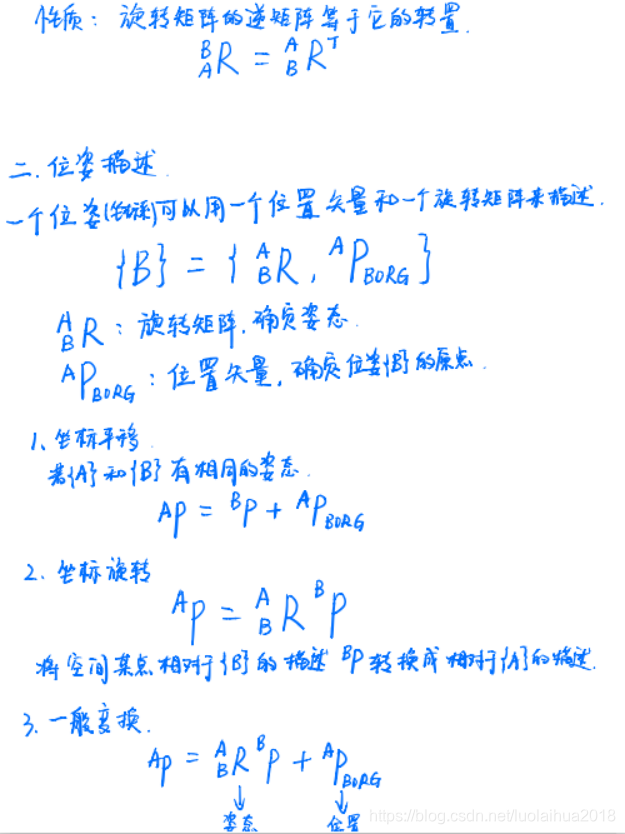 性质：旋转矩阵的逆矩阵等于它的转置.
{}^{B}_{A}R = {}^{A}_{B}R^{T}
二.位姿描述.
一个位姿()可以用一个位置矢量和一个旋转矩阵来描述.
{B} = { {}^{A}_{B}R, {}^{A}P_{BORG} }
{}^{A}_{B}R：旋转矩阵,确定姿态.
{}^{A}P_{BORG}：位置矢量,确定位姿{B}的原点.
1、坐标平移.
若{A}和{B}有相同的姿态.
{}^{A}P = {}^{B}P + {}^{A}P_{BORG}
2、坐标旋转
{}^{A}P = {}^{A}_{B}R {}^{B}P
将空间某点相对于{B}的描述 {}^{B}P 转换成相对于{A}的描述.
3、一般变换.
{}^{A}P = {}^{A}_{B}R {}^{B}P + {}^{A}P_{BORG}
↓ ↓
姿态 位置
https://blog.csdn.net/luolaihua2018